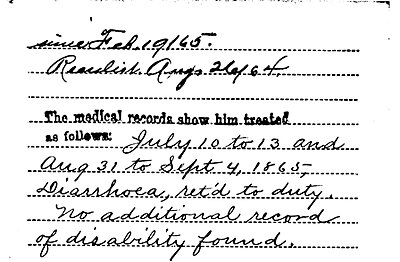 since Feb. 19/65.
Reenlist. Aug. 26/64.
The medical records show him treated
as follows: July 10 to 13 and
Aug 31 to Sept 4, 1865,
Diarrhoea, ret'd to duty.
No additional record
of disability found.